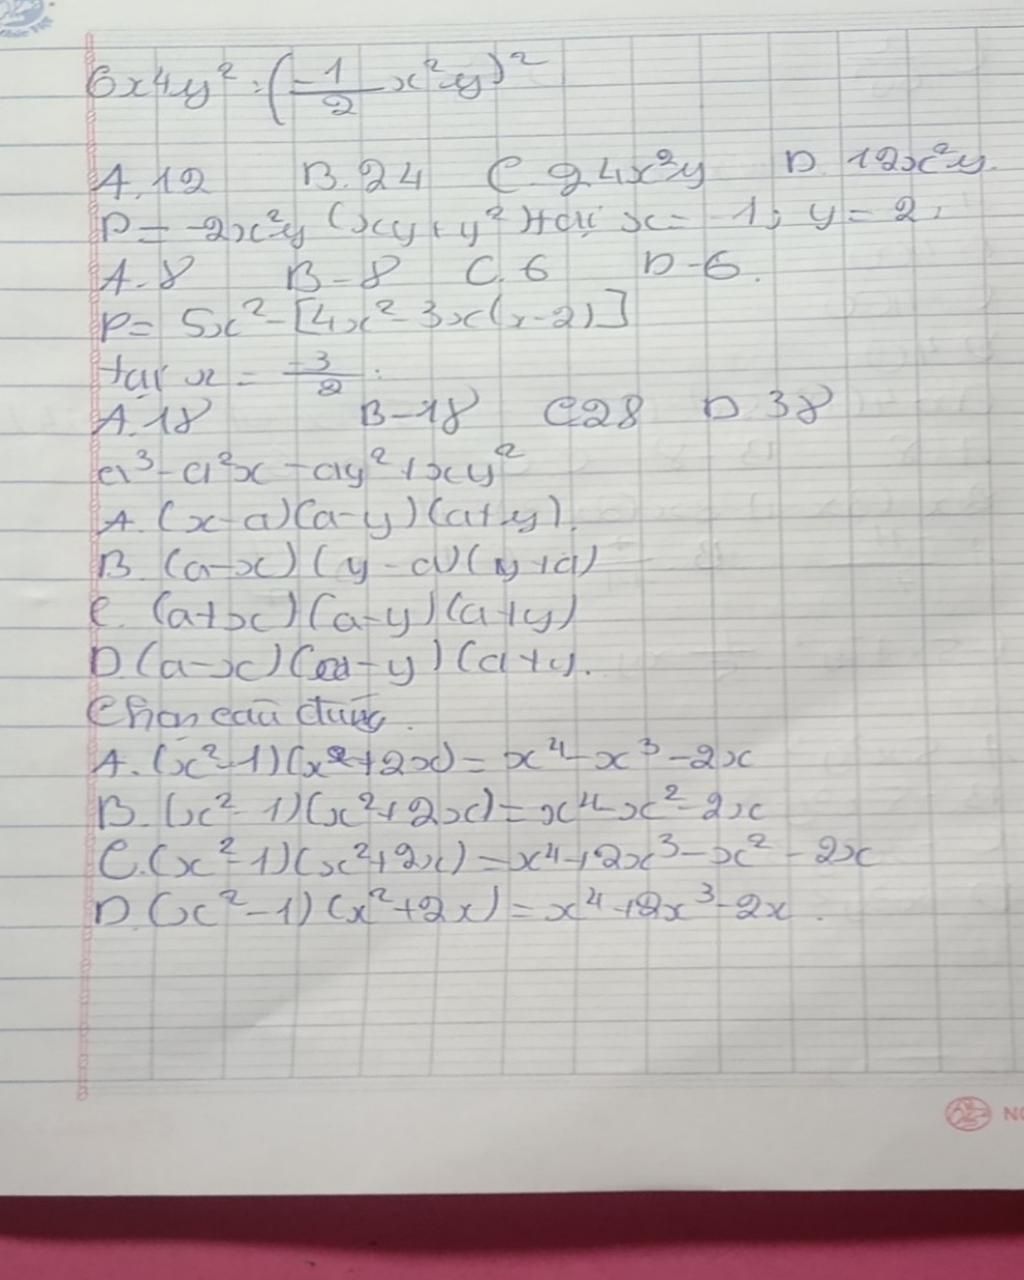 6x⁴y² : (-1/2 x²y)²
A. 12 B. 24 C. 24x²y D. 12x²y.
P = -2x²y (xy + y²) tại x = -1; y = 2.
A. 8 B -8 C. 6 D -6.
P = 5x² - [4x² - 3x(x-2)]
tại x = -3/2.
A. 18 B -18 C 28 D 38
a³ - a²x - ay² + xy²
A. (x-a)(a-y)(a+y).
B. (a-x)(y-a)(y+a)
C. (a+x)(a-y)(a+y)
D. (a-x)(a-y)(a+y).
Chọn câu đúng.
A. (x²-1)(x²+2x) = x⁴ - x³ - 2x
B. (x²-1)(x²+2x) = x⁴ - x² - 2x
C. (x²-1)(x²+2x) = x⁴ + 2x³ - x² - 2x
D. (x²-1)(x²+2x) = x⁴ + 2x³ - 2x.